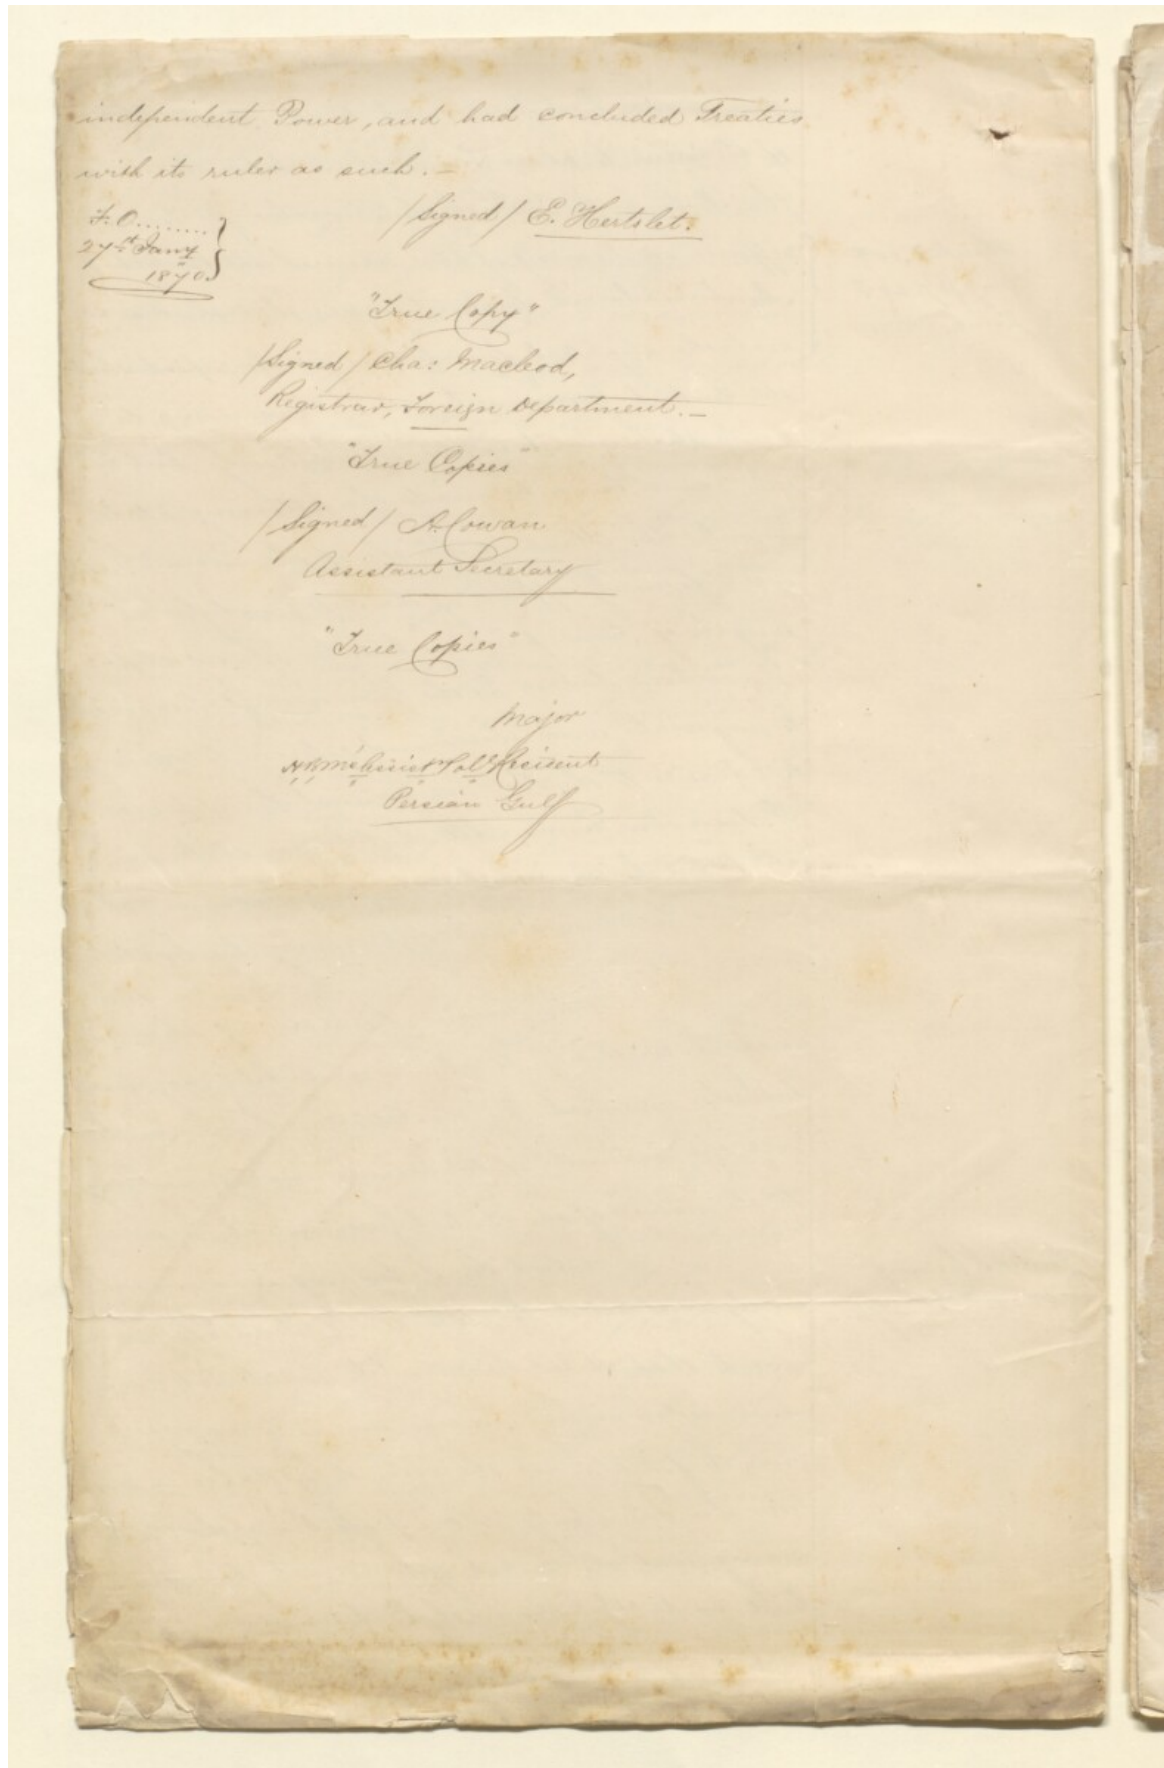 independent Power, and had concluded Treaties
with its ruler as such. —
/Signed/ E. Hertslet.
F. O. ........
27th Jany
1870.
"True Copy"
/Signed/ Cha: Macleod,
Registrar, Foreign Department. —
"True Copies"
/Signed/ A. Cowan
Assistant Secretary
"True Copies"
Major
H.B.M's Assist Poll Resident
Persian Gulf